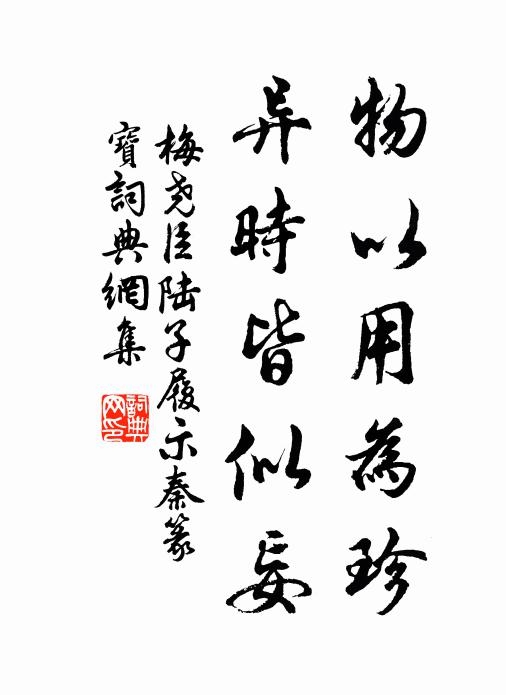 物以用為珍
异時皆似妄
梅尧臣陆子履示秦篆
寶詞典網集
詞典
网印